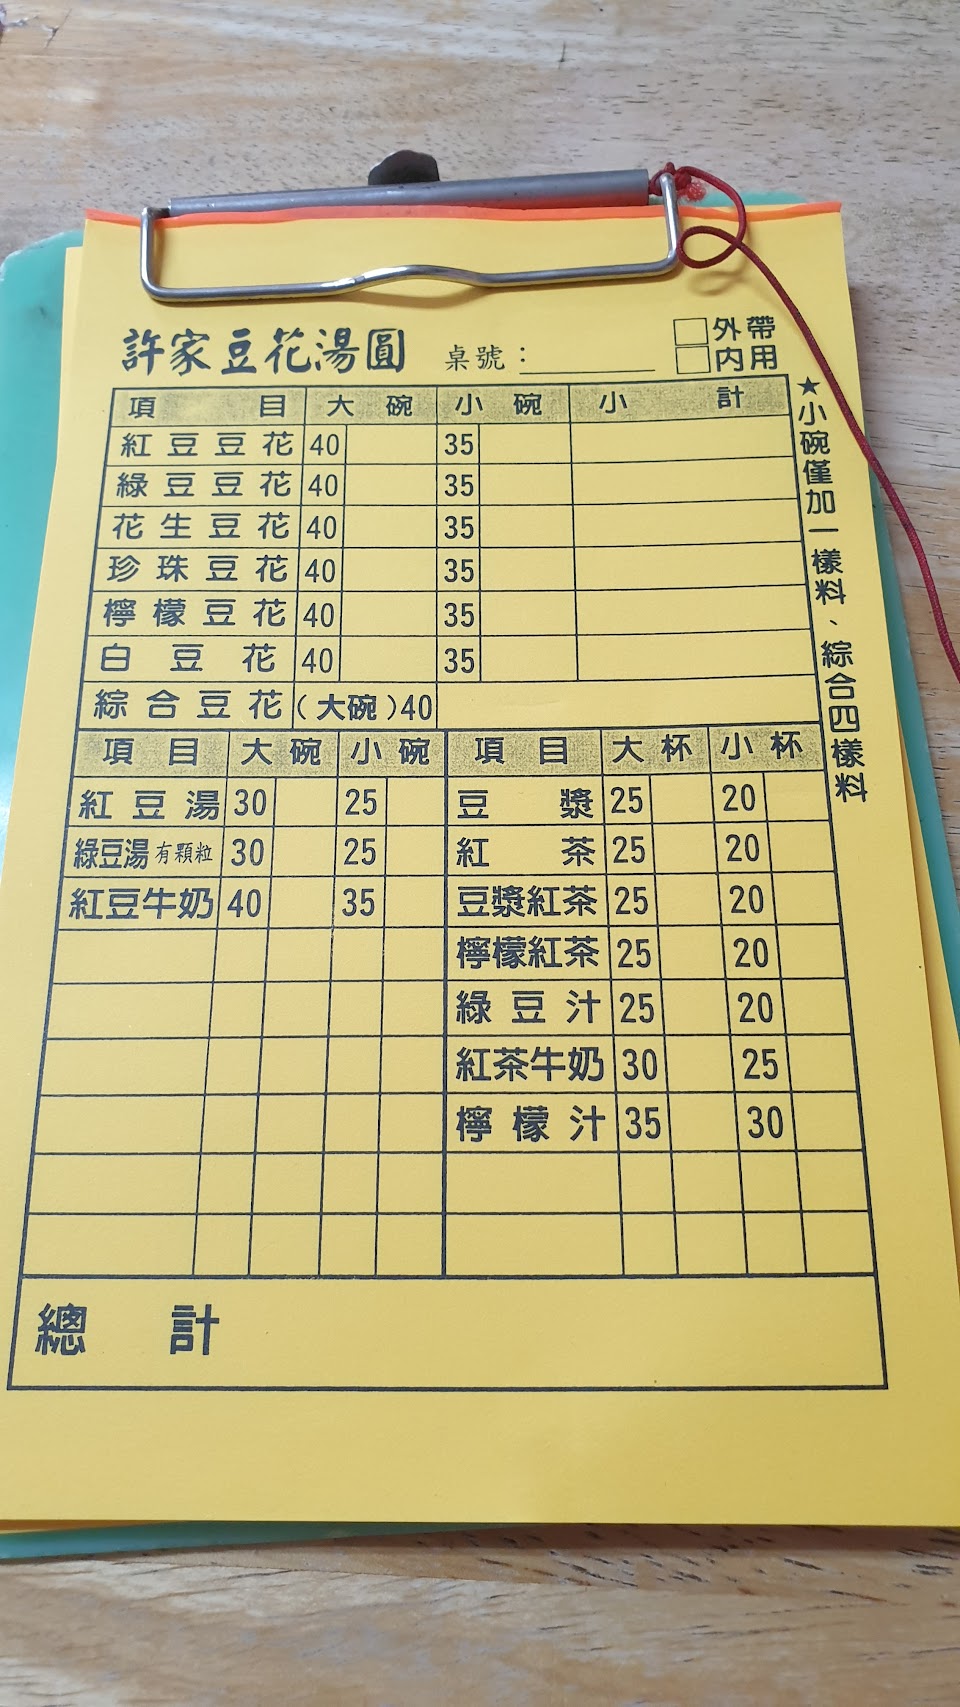 許家豆花湯圓 桌號：
外帶
內用
項目 大碗 小碗 小計
紅豆豆花 40 35
綠豆豆花 40 35
花生豆花 40 35
珍珠豆花 40 35
檸檬豆花 40 35
白豆花 40 35
綜合豆花 (大碗)40
★小碗僅加一樣料、綜合四樣料
項目 大碗 小碗
紅豆湯 30 25
綠豆湯 有顆粒 30 25
紅豆牛奶 40 35
項目 大杯 小杯
豆漿 25 20
紅茶 25 20
豆漿紅茶 25 20
檸檬紅茶 25 20
綠豆汁 25 20
紅茶牛奶 30 25
檸檬汁 35 30
總計